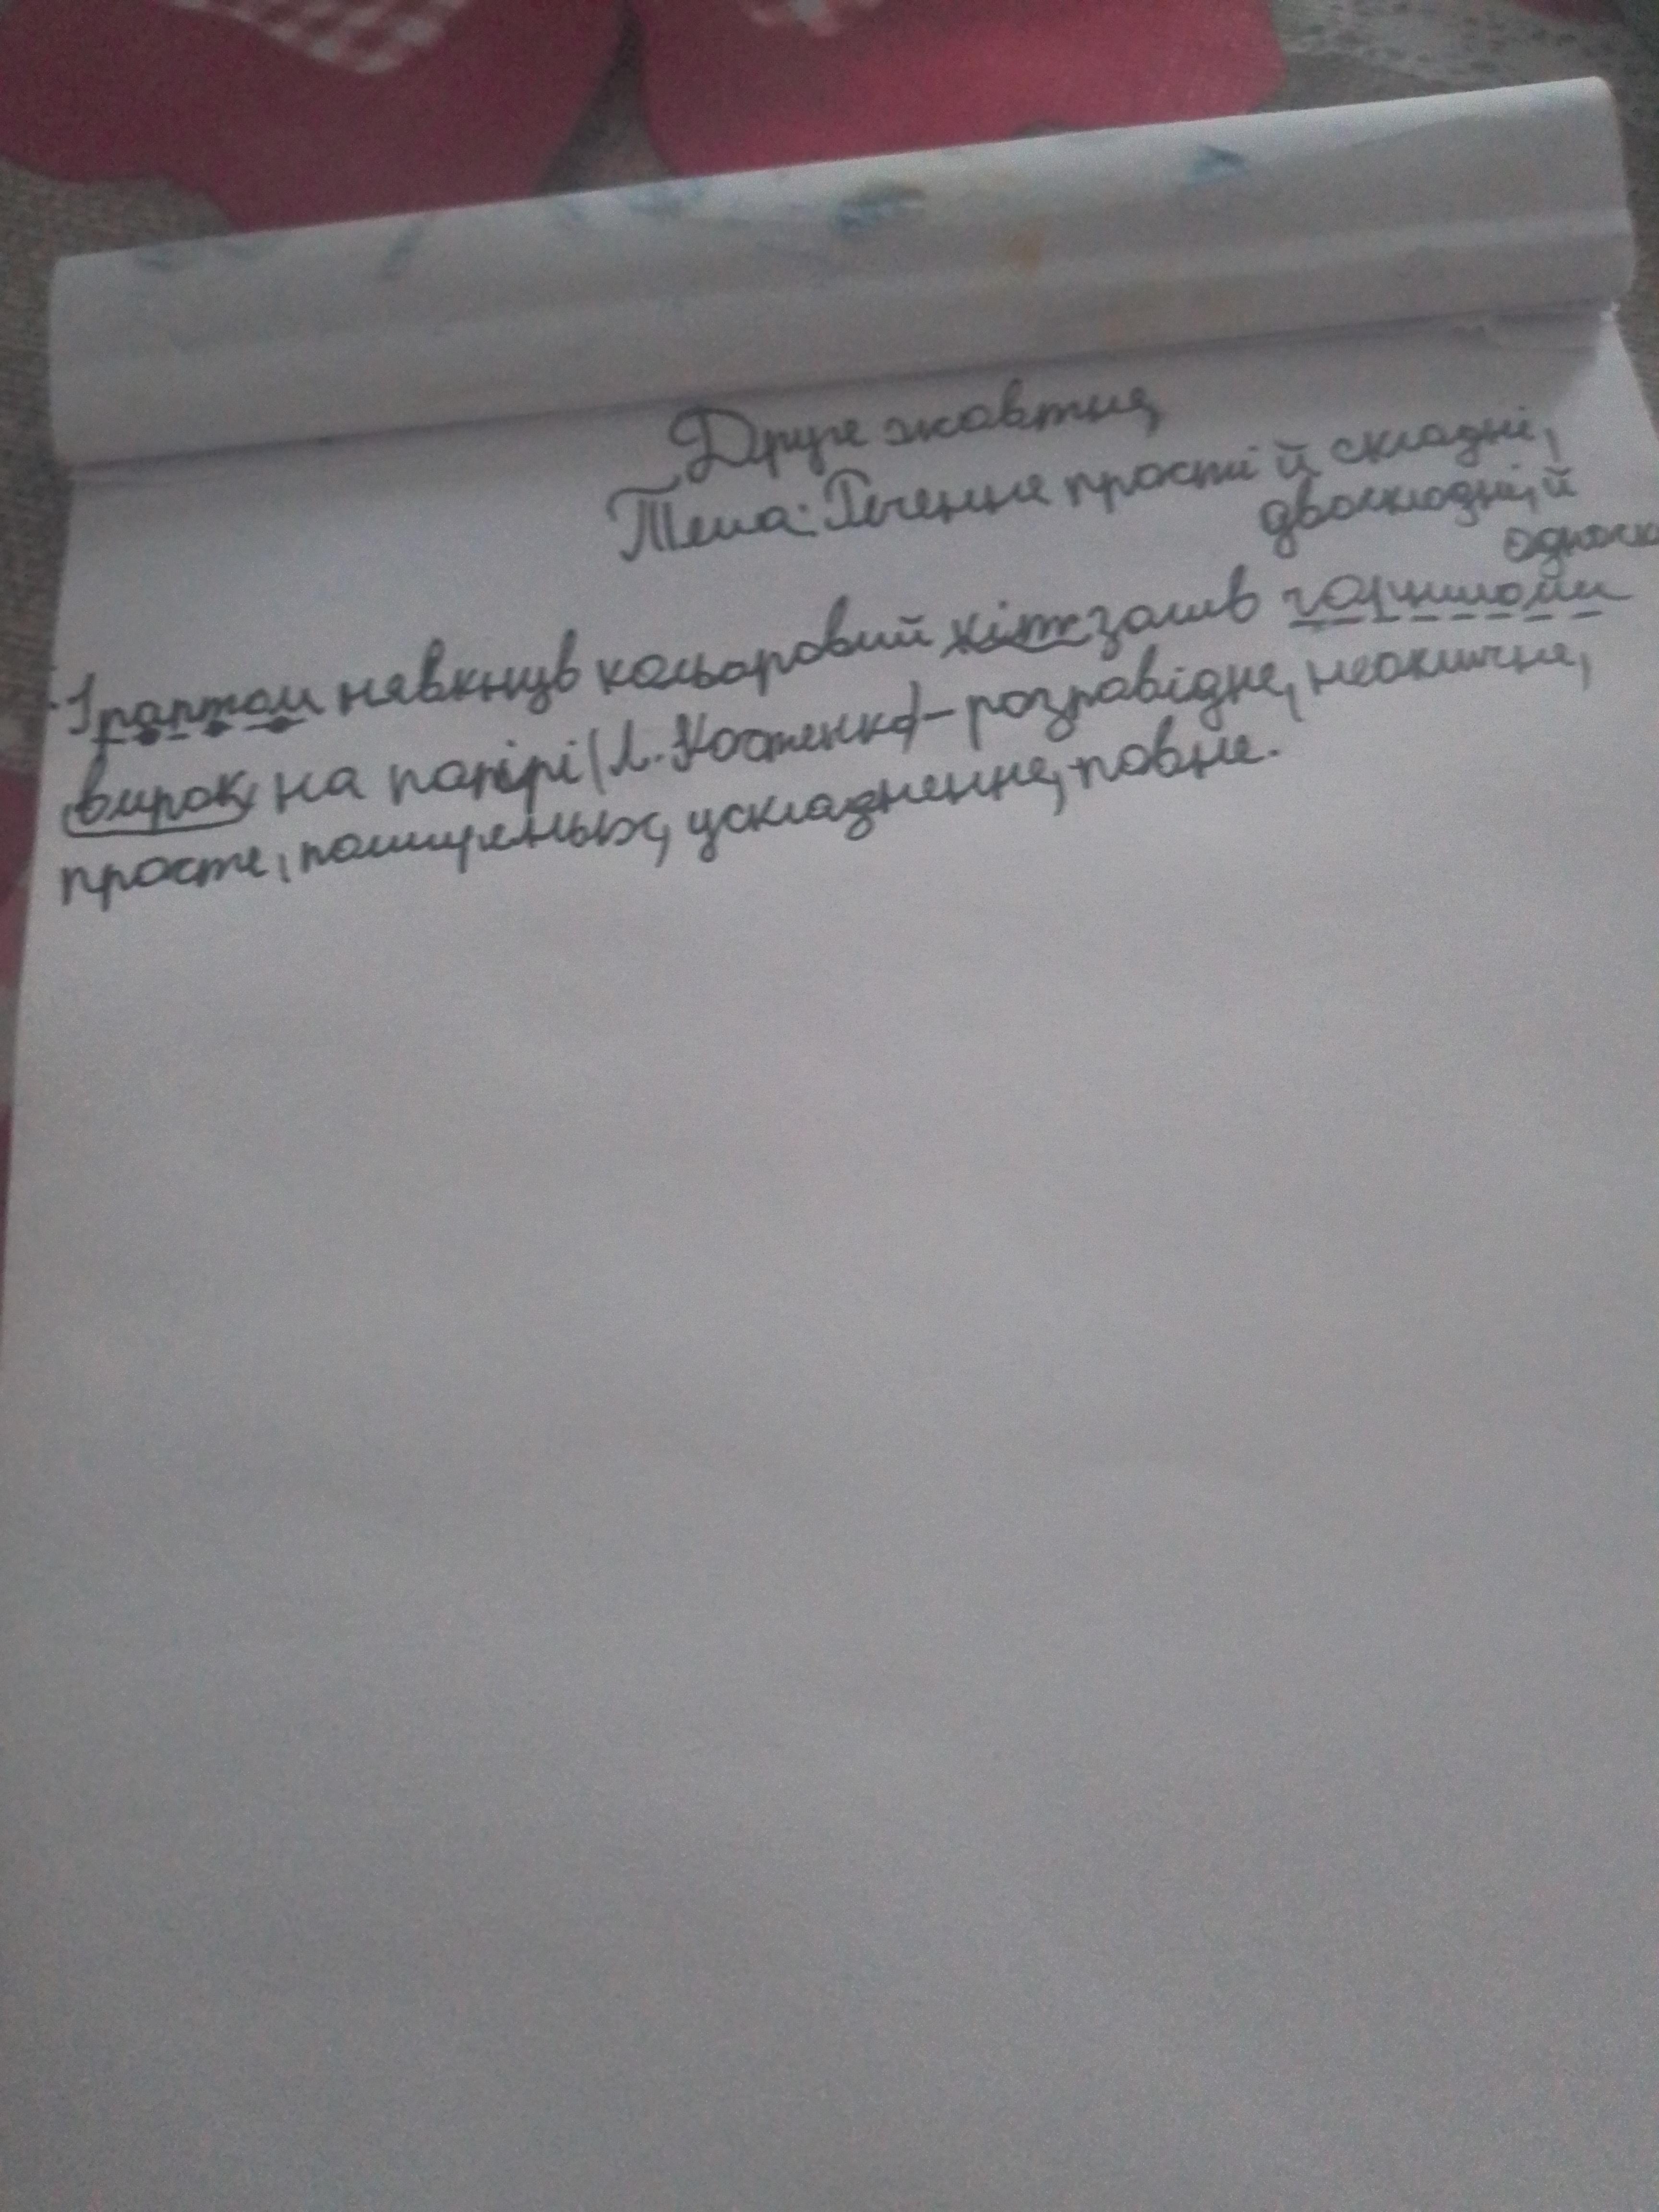 Друге жовтня
Тема: Речення прості й складні,
двоскладні, й
односк
Іраптом нявкнув кольоровий кіт залив чорнилами
вирок на папірі (Л. Костенко) – розповідне, неоклична,
просте, поширеных, ускладненне, повне.